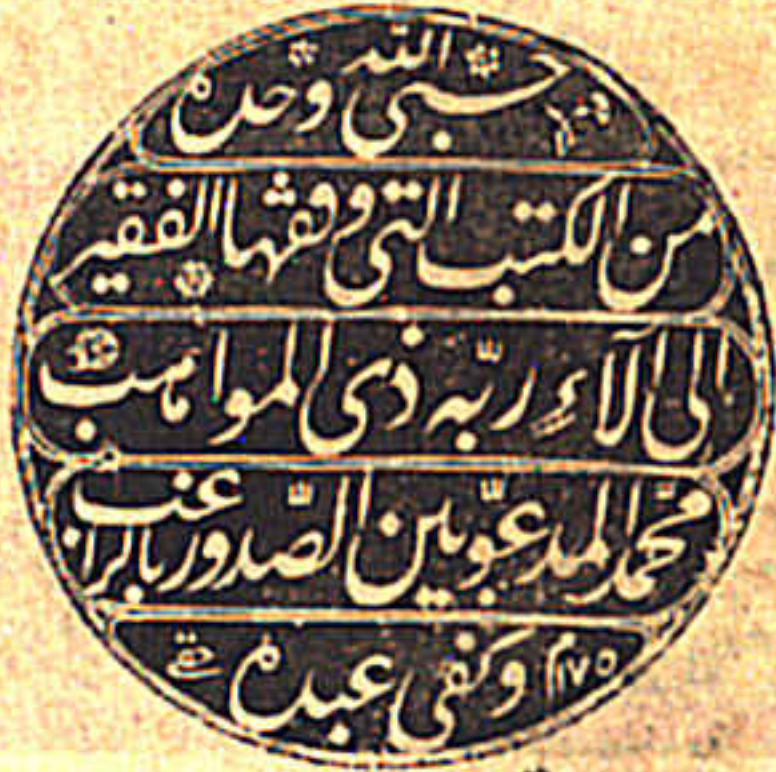 حسبي الله وحده
من الكتب التي وقفها الفقير
الى آلاءِ ربّه ذى المواهب
محمّد المدعوّ بين الصّدور بالراغب
وكفى عبده